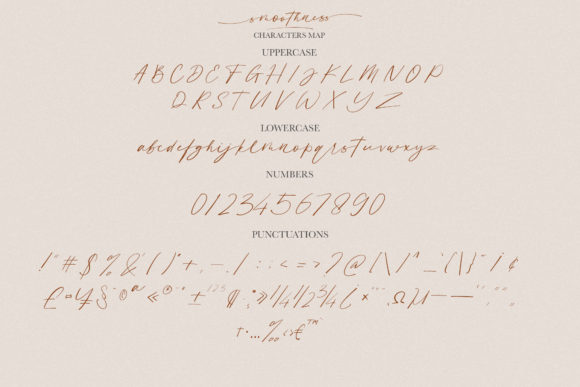 smoothness
CHARACTERS MAP
UPPERCASE
A B C D E F G H I J K L M N O P
Q R S T U V W X Y Z
LOWERCASE
abcdefghijklmnopqrstuvwxyz
NUMBERS
01234567890
PUNCTUATIONS
! " # $ % & ' ( ) * + , - . / : ; < = > ? @ [ \ ] ^ _ ` { | } ~ ¡ ¢
£ ¤ ¥ § ¨ © ª « ® ± ¶ · » ¼ ½ ¾ ¿ × Ω µ – —
† • … ‰ ‹ › € ™